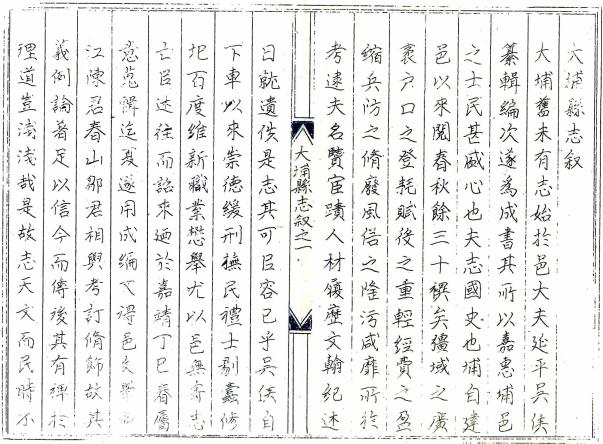 大埔縣志叙
大埔舊未有志始於邑大夫延平吳侯
纂輯編次遂為成書其所以嘉惠埔邑
之士民甚盛心也夫志國史也埔自建
邑以來閱春秋餘三十稧矣彊域之廣
袤戶口之登耗賦役之重輕經費之盈
縮兵防之脩廢風信之隆污咸靡所於
考逮夫名賢宦蹟人材履歷文翰紀述
大埔縣志叙之一
日就遺佚是志其可㠯容已乎吳侯自
下車以來崇德緩刑橅民禮士剔蠹修
圯百度維新職業懋舉尤以邑無寄志
亡㠯述往而詔來迺於嘉靖丁巳春屬
意蒐 迄夏遂用成編 得邑
江陳君春山鄒君相與考訂脩飾故其
義例論著足以信今而傳後其有裨於
理道豈淺淺哉是故志天文而民時不